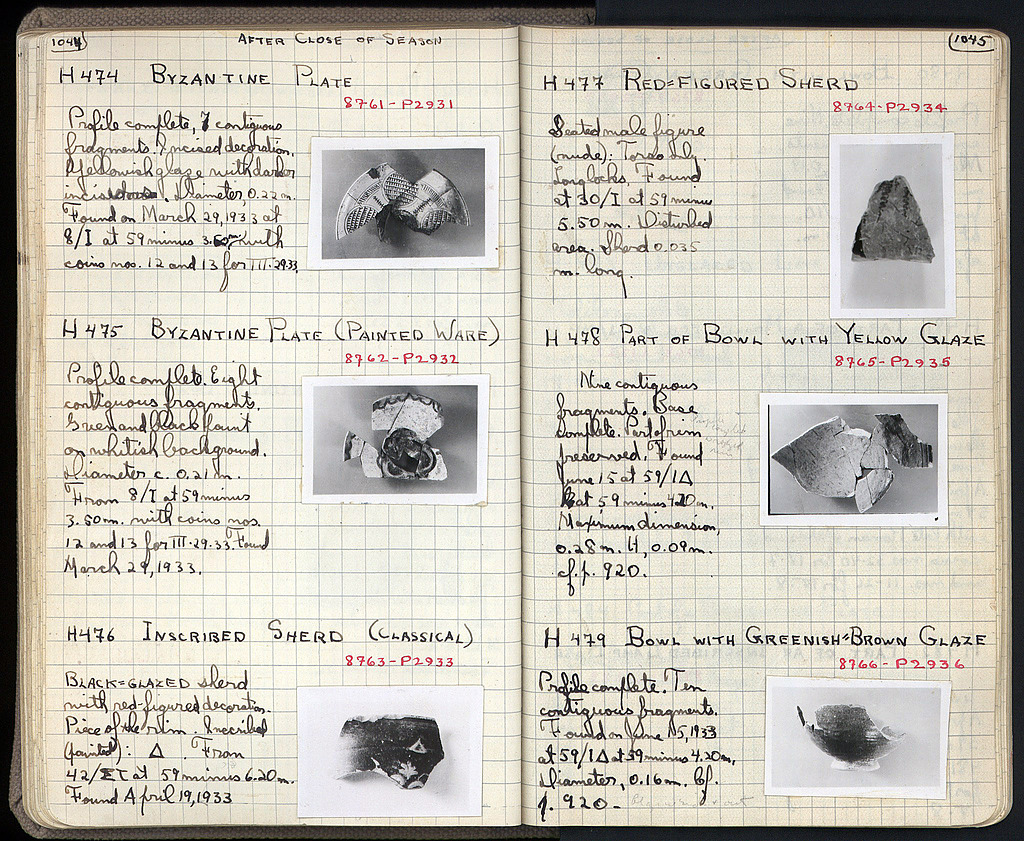 1044
AFTER CLOSE OF SEASON
H 474 BYZANTINE PLATE
8761-P2931
Profile complete, 7 contiguous
fragments. Incised decoration.
Yellowish glaze with darker
Diameter, 0.22 m.
Found on March 29, 1933 at
8/I at 59 minus with
coins nos. 12 and 13 for III-29-33.
H 475 BYZANTINE PLATE (PAINTED WARE)
8762-P2932
Profile complete. Eight
contiguous fragments.
Green and black paint
on whitish background.
Diameter c. 0.21 m.
From 8/I at 59 minus
3.50 m. with coins nos.
12 and 13 for III-29-33. Found
March 29, 1933.
H 476 INSCRIBED SHERD (CLASSICAL)
8763-P2933
BLACK=GLAZED sherd
with red-figured decoration.
Piece of the rim. Inscribed
(painted): Δ. From
42/ at 59 minus 6.20 m.
Found April 19, 1933
1045
H 477 RED=FIGURED SHERD
8764-P2934
Seated male figure
(nude). Torso only.
Long locks. Found
at 30/I at 59 minus
5.50 m. Disturbed
area. Sherd 0.035
m. long.
H 478 PART OF BOWL WITH YELLOW GLAZE
8765-P2935
Nine contiguous
fragments. Base
complete. Part of rim
preserved. Found
June 15 at 59/ΙΔ
at 59 minus 4.20 m.
Maximum dimension,
0.28 m. H, 0.09 m.
cf. p. 920.
H 479 BOWL WITH GREENISH=BROWN GLAZE
8766-P2936
Profile complete. Ten
contiguous fragments.
Found on June 15, 1933
at 59/ΙΔ at 59 minus 4.20 m.
Diameter, 0.16 m. Cf.
p. 920.